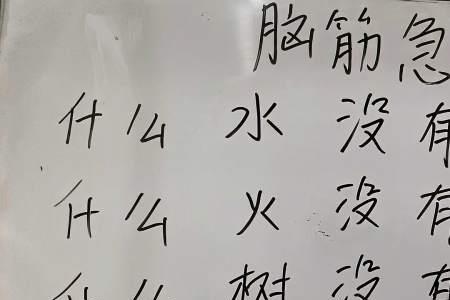 脑筋急
什么水没有
什么火没有
什么树没有